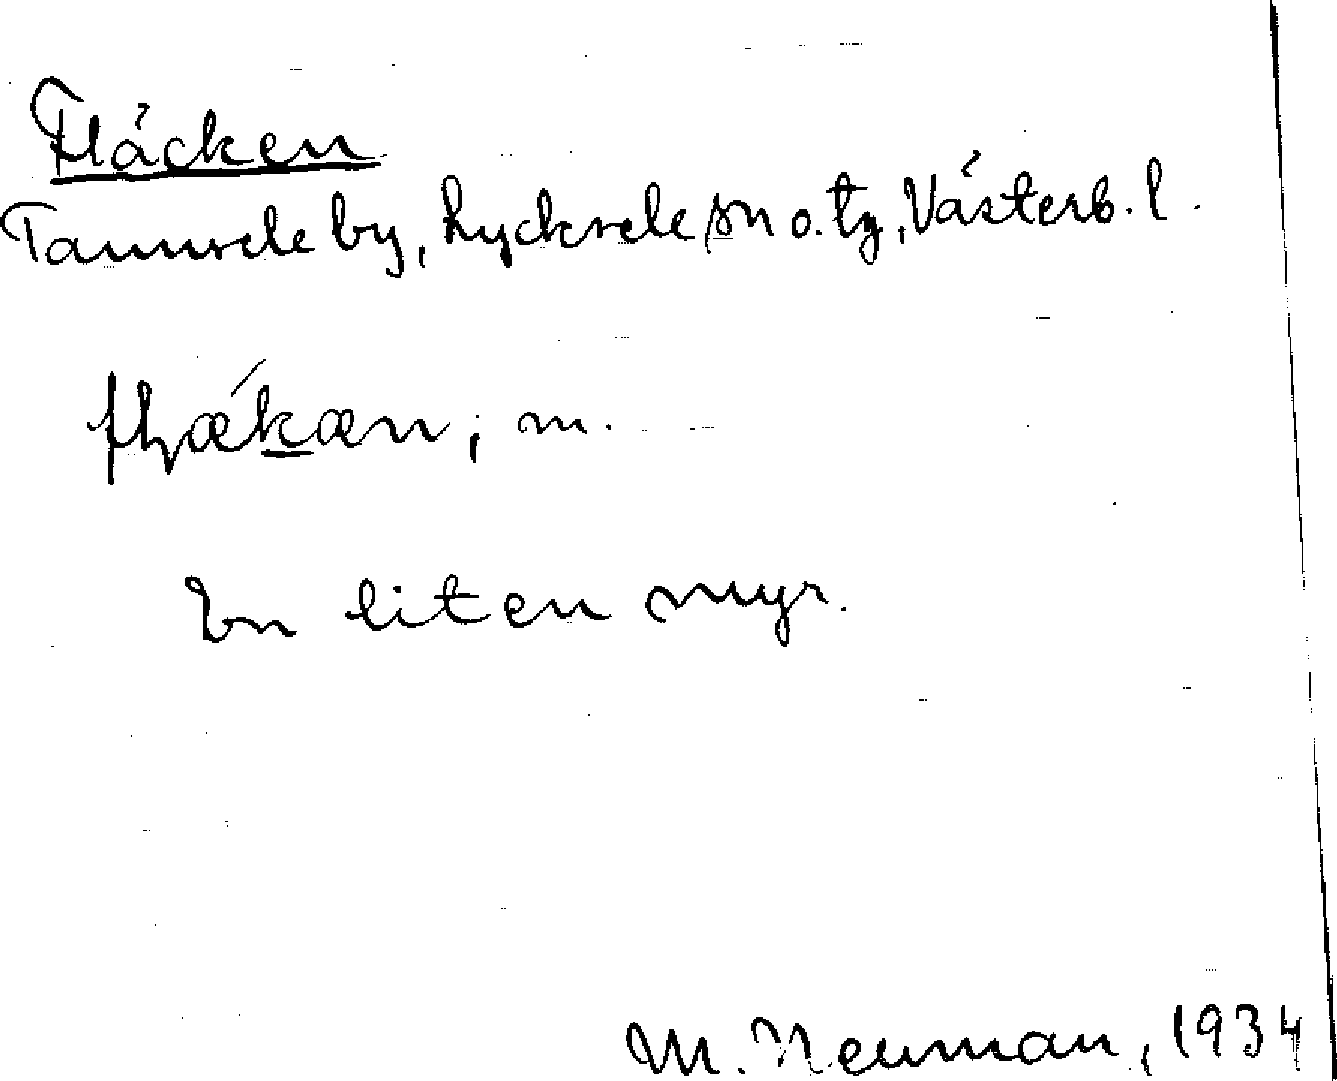 Fläcken
Tannsele by, Lycksele sn o. tg, Västerb. l.
flækæn, m.
En liten myr.
M. Neuman, 1934